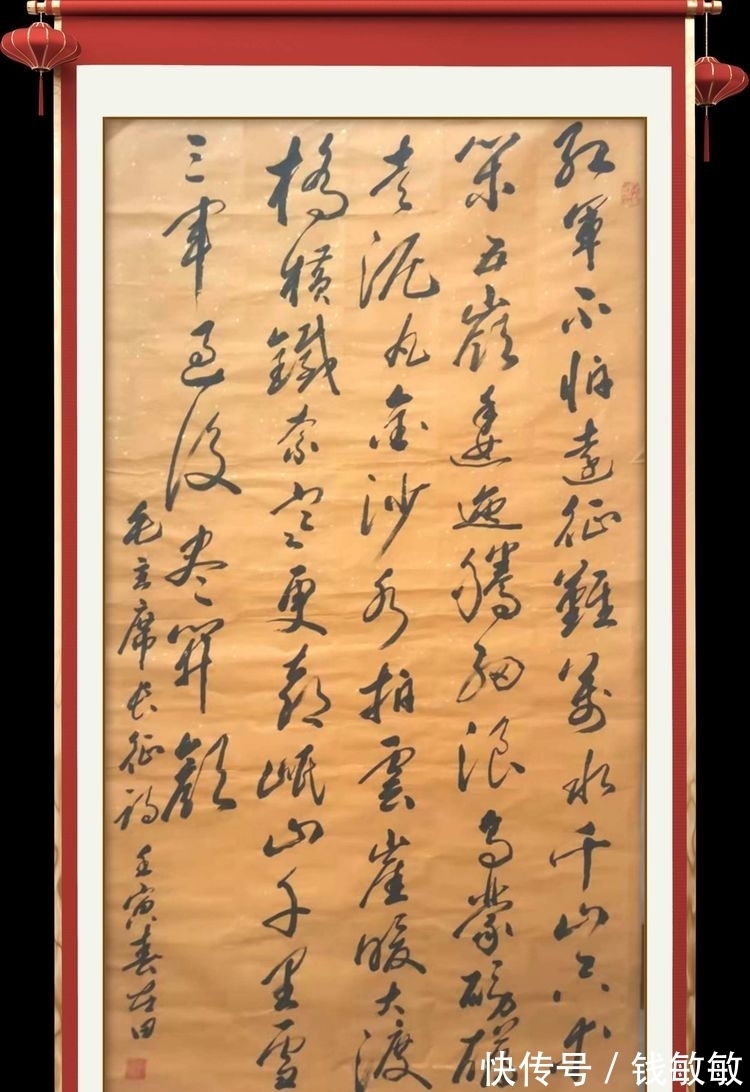 紅軍不怕遠征難萬水千山只等
閑五嶺逶迤騰細浪烏蒙磅礴
走泥丸金沙水拍雲崖暖大渡
橋横鐵索寒更喜岷山千里雪
三軍過後尽開顔
毛主席长征诗 壬寅春田
快传号 / 钱敏敏